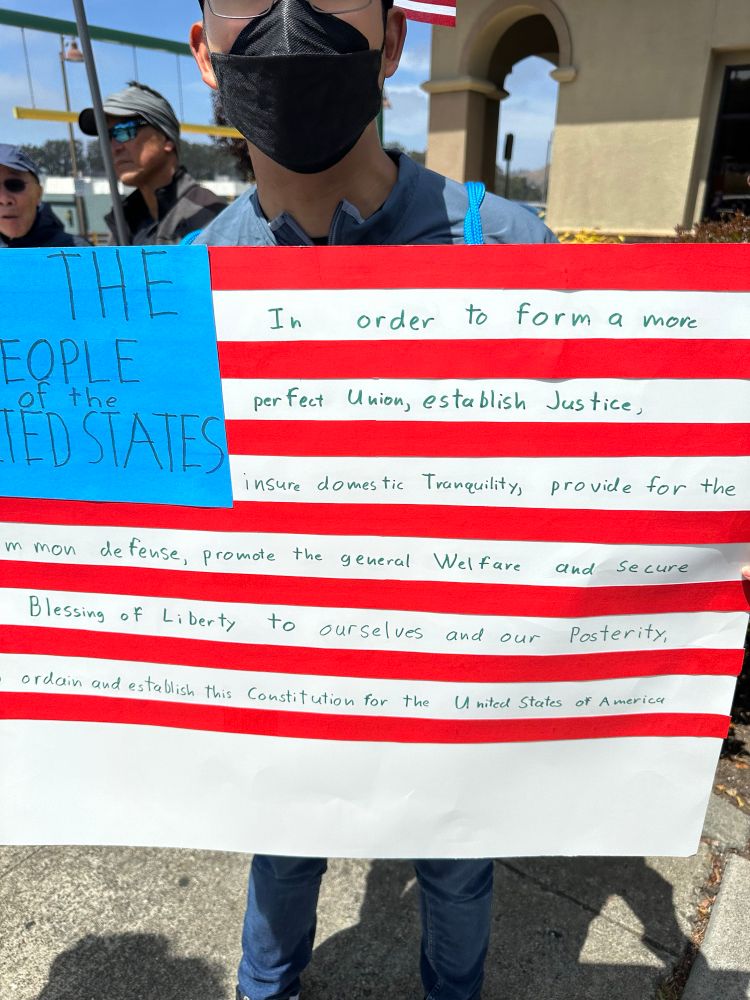 THE
EOPLE
of the
TED STATES
In order to form a more
perfect Union, establish Justice,
insure domestic Tranquility, provide for the
mmon defense, promote the general Welfare and secure
Blessing of Liberty to ourselves and our Posterity,
ordain and establish this Constitution for the United States of America